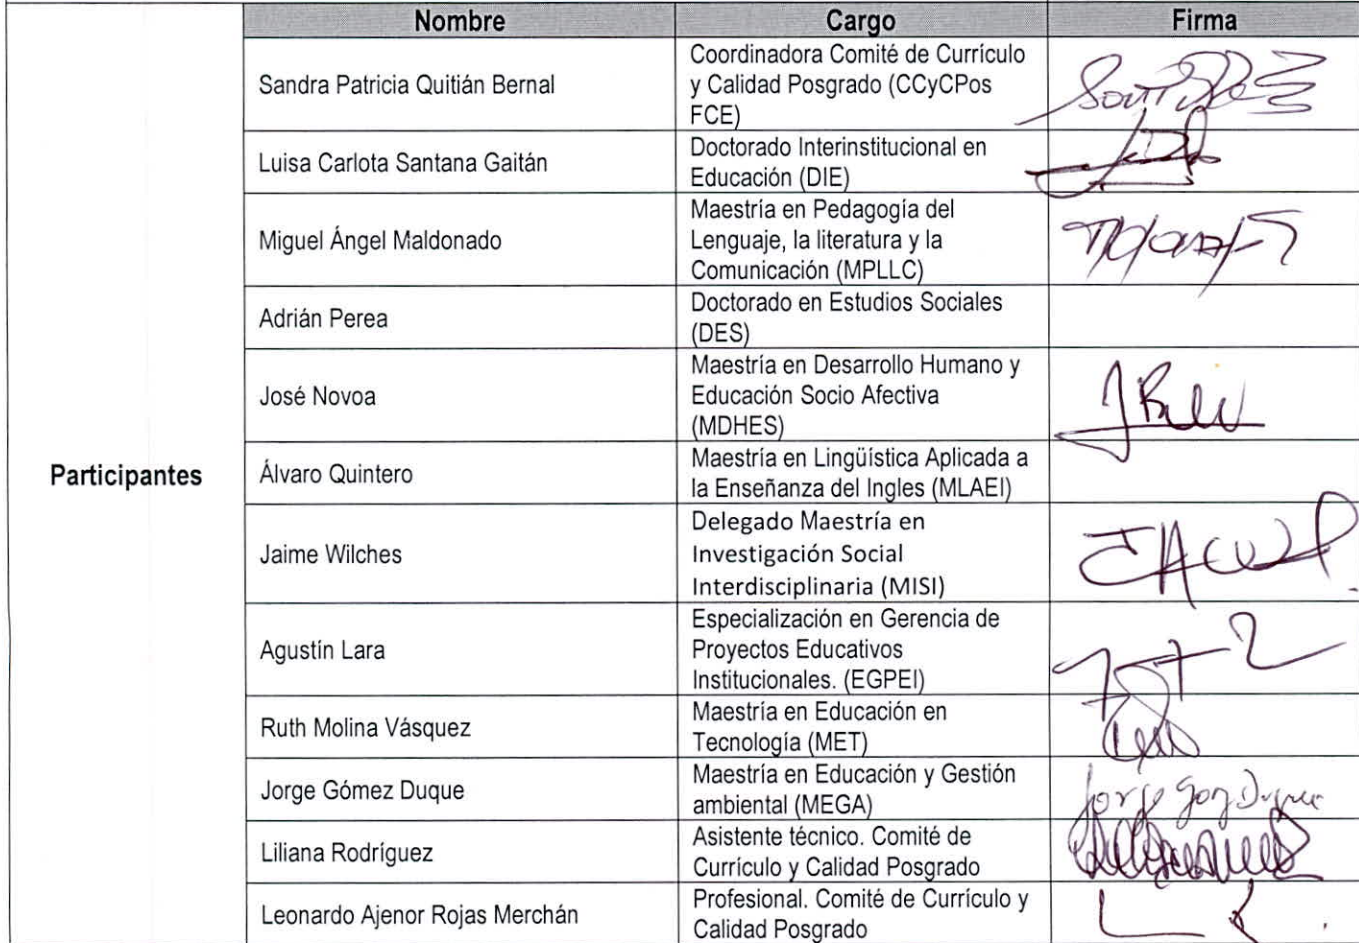 Nombre Cargo Firma
Participantes
Sandra Patricia Quitián Bernal
Coordinadora Comité de Currículo
y Calidad Posgrado (CCyCPos
FCE)
Luisa Carlota Santana Gaitán
Doctorado Interinstitucional en
Educación (DIE)
Miguel Ángel Maldonado
Maestría en Pedagogía del
Lenguaje, la literatura y la
Comunicación (MPLLC)
Adrián Perea
Doctorado en Estudios Sociales
(DES)
José Novoa
Maestría en Desarrollo Humano y
Educación Socio Afectiva
(MDHES)
Álvaro Quintero
Maestría en Lingüística Aplicada a
la Enseñanza del Ingles (MLAEI)
Jaime Wilches
Delegado Maestría en
Investigación Social
Interdisciplinaria (MISI)
Agustín Lara
Especialización en Gerencia de
Proyectos Educativos
Institucionales. (EGPEI)
Ruth Molina Vásquez
Maestría en Educación en
Tecnología (MET)
Jorge Gómez Duque
Maestría en Educación y Gestión
ambiental (MEGA)
Jorge Duque
Liliana Rodríguez
Asistente técnico. Comité de
Currículo y Calidad Posgrado
Leonardo Ajenor Rojas Merchán
Profesional. Comité de Currículo y
Calidad Posgrado